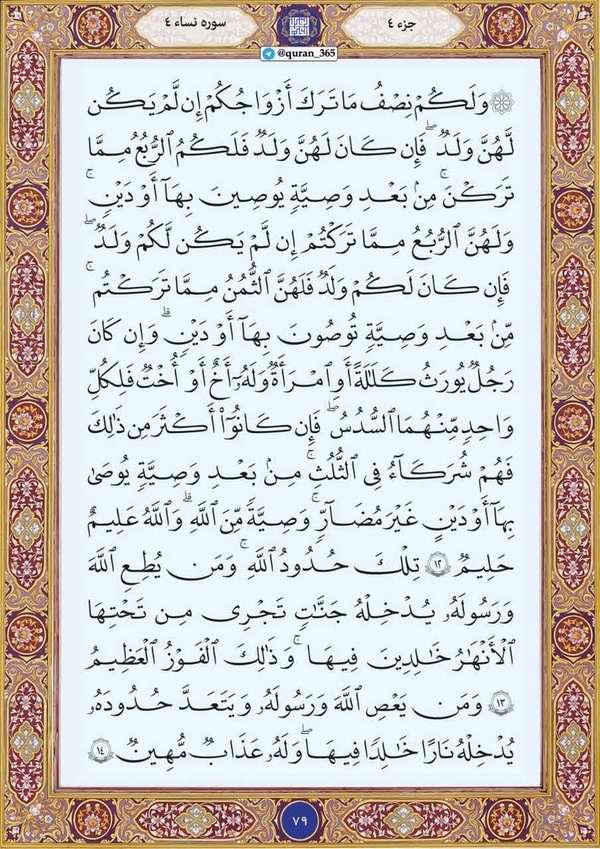 سوره نساء ٤
جزء ٤
@quran_365
۞ وَلَكُمْ نِصْفُ مَا تَرَكَ أَزْوَاجُكُمْ إِن لَّمْ يَكُن
لَّهُنَّ وَلَدٌ ۖ فَإِن كَانَ لَهُنَّ وَلَدٌ فَلَكُمُ ٱلرُّبُعُ مِمَّا
تَرَكْنَ ۚ مِنۢ بَعْدِ وَصِيَّةٍ يُوصِينَ بِهَآ أَوْ دَيْنٍ ۚ
وَلَهُنَّ ٱلرُّبُعُ مِمَّا تَرَكْتُمْ إِن لَّمْ يَكُن لَّكُمْ وَلَدٌ ۖ
فَإِن كَانَ لَكُمْ وَلَدٌ فَلَهُنَّ ٱلثُّمُنُ مِمَّا تَرَكْتُم ۚ
مِّنۢ بَعْدِ وَصِيَّةٍ تُوصُونَ بِهَآ أَوْ دَيْنٍ ۗ وَإِن كَانَ
رَجُلٌ يُورَثُ كَلَٰلَةً أَوِ ٱمْرَأَةٌ وَلَهُۥٓ أَخٌ أَوْ أُخْتٌ فَلِكُلِّ
وَٰحِدٍ مِّنْهُمَا ٱلسُّدُسُ ۚ فَإِن كَانُوٓا۟ أَكْثَرَ مِن ذَٰلِكَ
فَهُمْ شُرَكَآءُ فِى ٱلثُّلُثِ ۚ مِنۢ بَعْدِ وَصِيَّةٍ يُوصَىٰ
بِهَآ أَوْ دَيْنٍ غَيْرَ مُضَآرٍّ ۚ وَصِيَّةً مِّنَ ٱللَّهِ ۗ وَٱللَّهُ عَلِيمٌ
حَلِيمٌ ١٢ تِلْكَ حُدُودُ ٱللَّهِ ۚ وَمَن يُطِعِ ٱللَّهَ
وَرَسُولَهُۥ يُدْخِلْهُ جَنَّٰتٍ تَجْرِى مِن تَحْتِهَا
ٱلْأَنْهَٰرُ خَٰلِدِينَ فِيهَا ۚ وَذَٰلِكَ ٱلْفَوْزُ ٱلْعَظِيمُ
١٣ وَمَن يَعْصِ ٱللَّهَ وَرَسُولَهُۥ وَيَتَعَدَّ حُدُودَهُۥ
يُدْخِلْهُ نَارًا خَٰلِدًا فِيهَا ۖ وَلَهُۥ عَذَابٌ مُّهِينٌ ١٤
٧٩